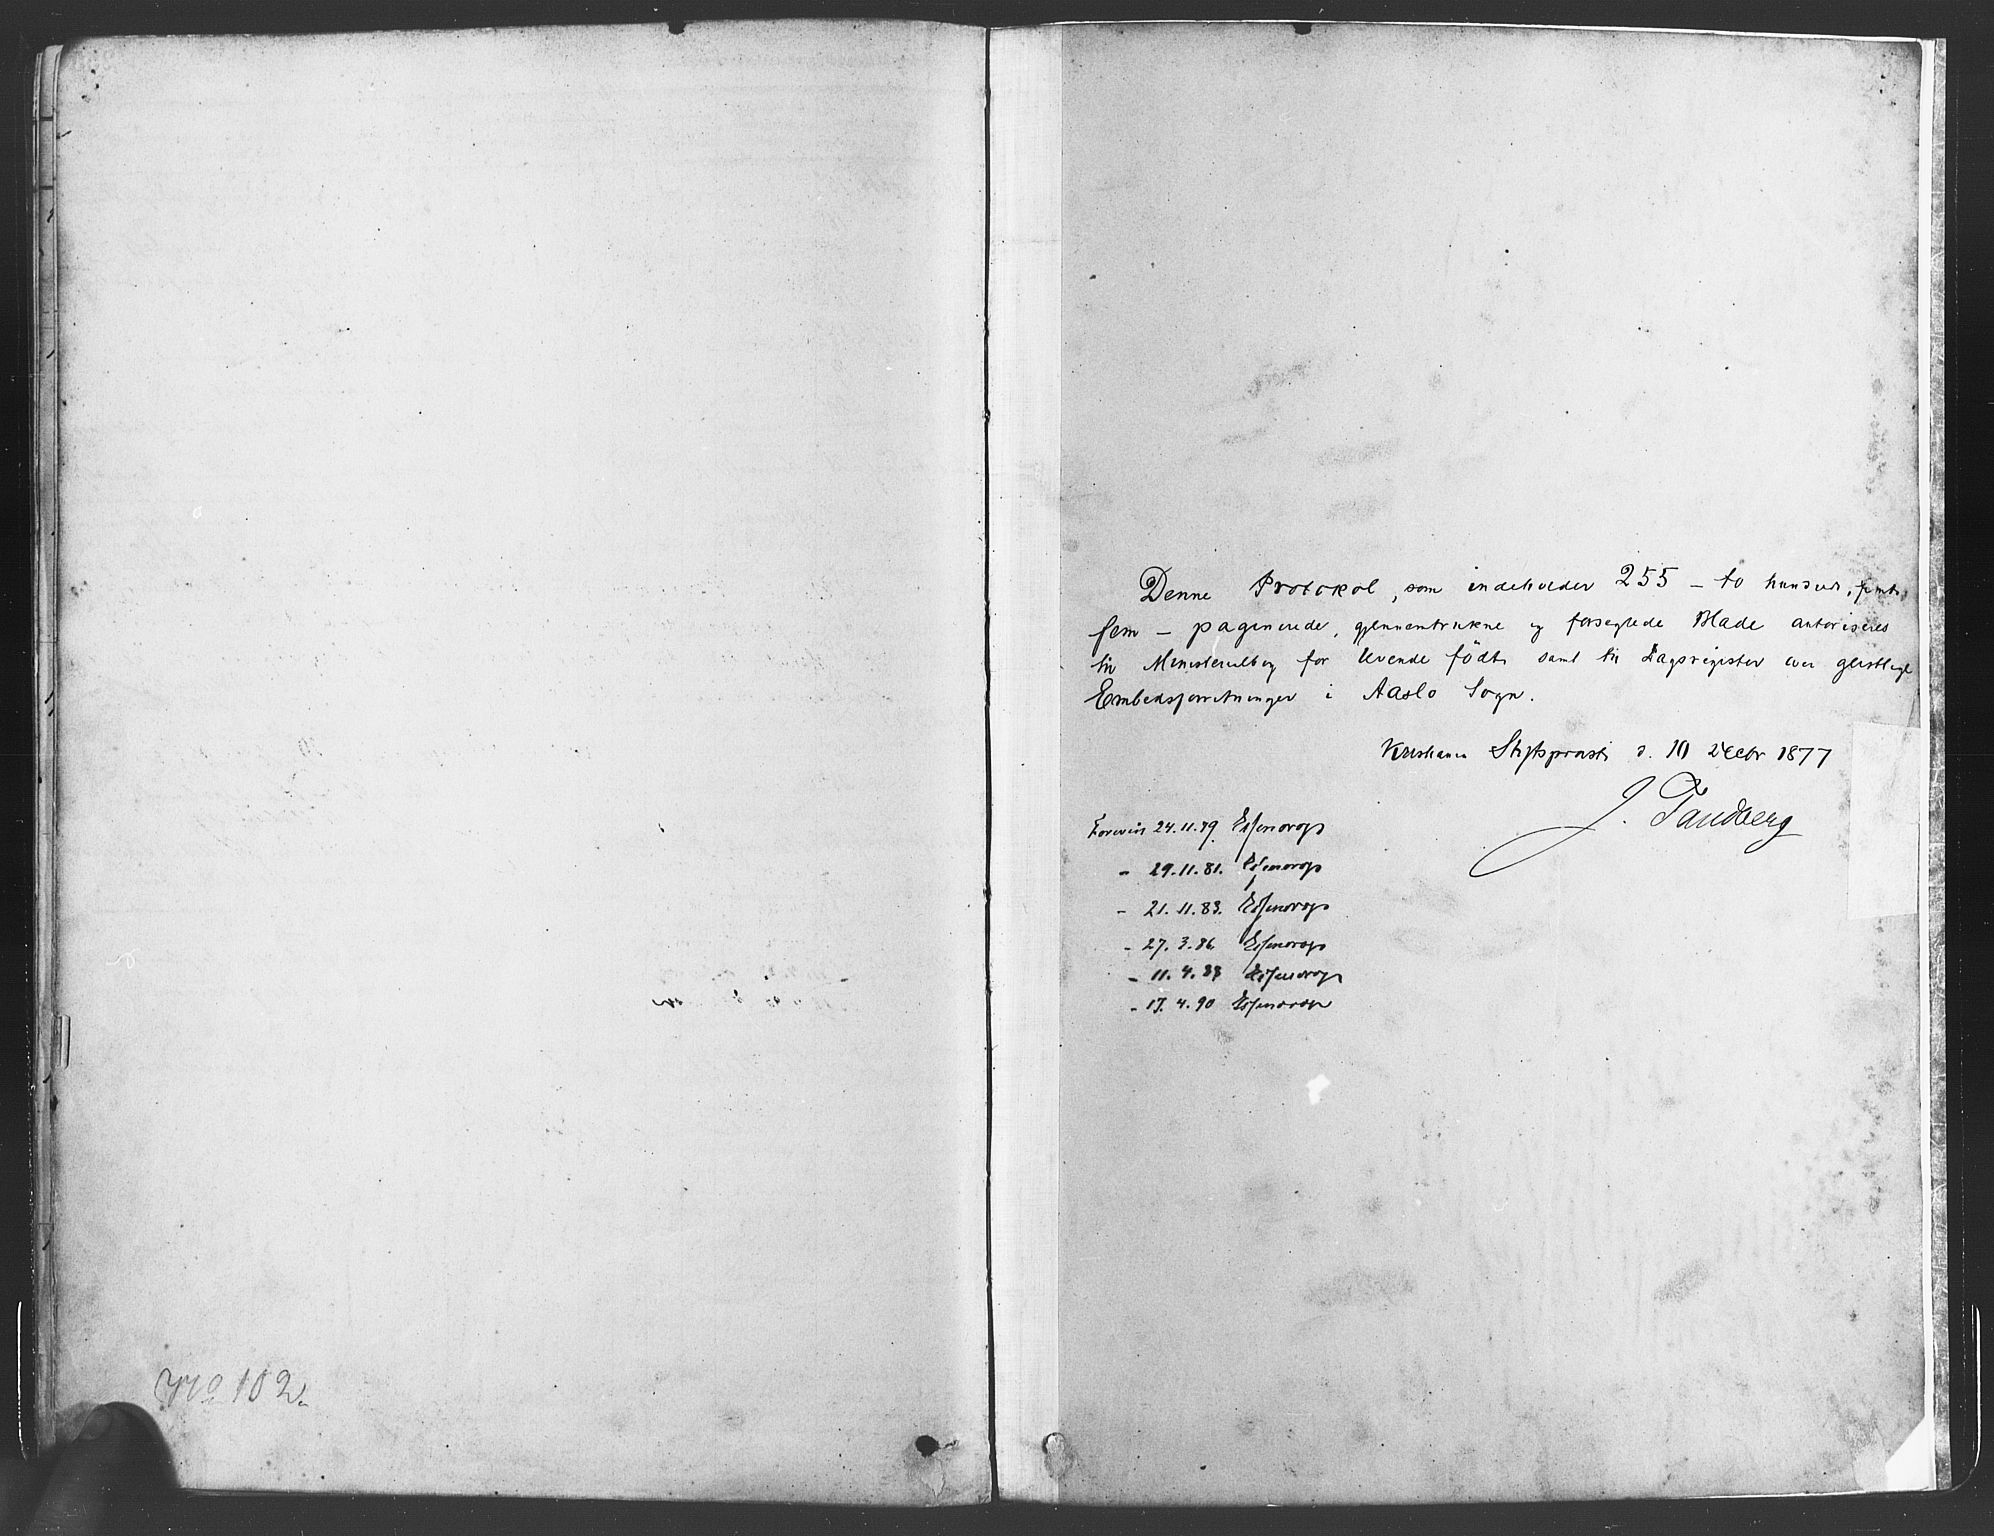 No 102.
Denne Protokol, som indeholder 255 – to hundred, femti
fem – paginerede, gjennemtrukne og forseglede Blade autoriseres
til Ministerialbog for levende födte samt til Dagsregister over geistlige
Embedsforretninger i Aaslo Sogn.
Kristiania Stiftsprovsti d. 10 Decbr 1877
J. Tandberg
24.11.79. Essendrop
– 29.11.81. Essendrop
– 21.11.83. Essendrop
– 27.3.86. Essendrop
– 11.4.88 Essendrop
– 17.4.90 Essendrop